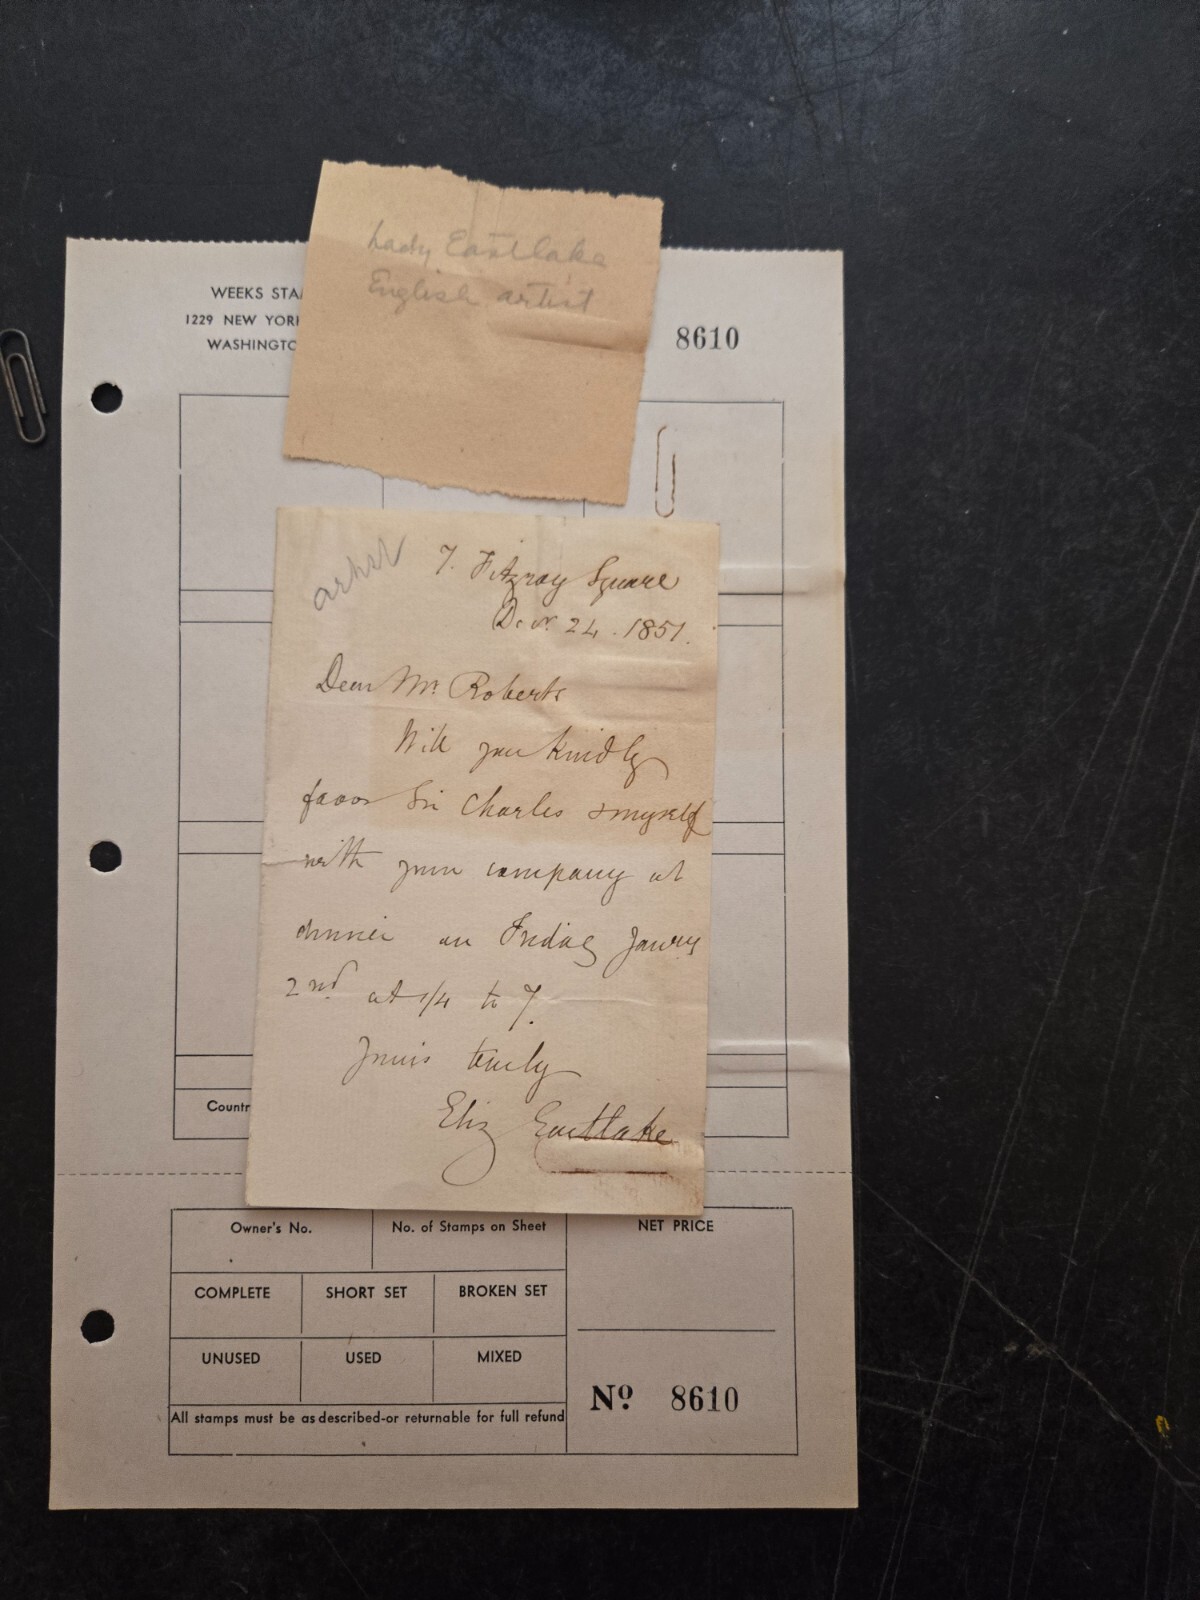 Lady Eastlake
English artist
WEEKS STA
1229 NEW YOR
WASHINGTO
8610
artist
7. Fitzroy Square
Decr. 24. 1851.
Dear Mr. Roberts
Will you kindly
favor Sir Charles & myself
with your company at
dinner on Friday Janry
2nd at 1/4 to 7.
Yours truly
Eliz Eastlake
Countr
Owner's No.
No. of Stamps on Sheet
NET PRICE
COMPLETE
SHORT SET
BROKEN SET
UNUSED
USED
MIXED
All stamps must be as described-or returnable for full refund
No. 8610